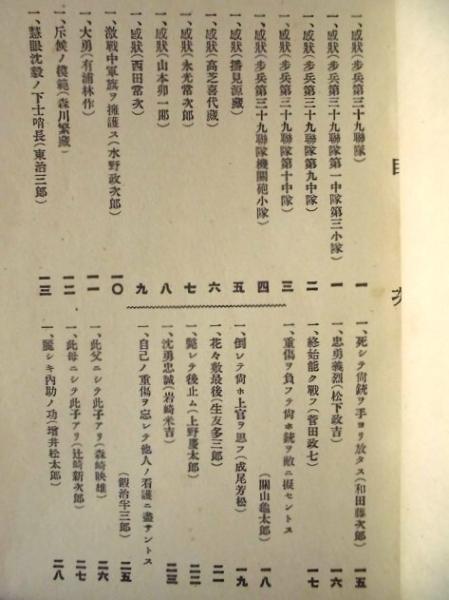 目次
一、感狀(步兵第三十九聯隊) 一
一、感狀(步兵第三十九聯隊第一中隊第三小隊) 一
一、感狀(步兵第三十九聯隊第九中隊) 二
一、感狀(步兵第三十九聯隊第十中隊) 三
一、感狀(步兵第三十九聯隊機關砲小隊) 四
一、感狀(播見源藏) 五
一、感狀(高芝喜代藏) 六
一、感狀(永光常次郎) 七
一、感狀(山本卯一郎) 八
一、感狀(西田常次) 九
一、激戰中軍旗ヲ擁護ス(水野政次郎) 一〇
一、大勇(有浦林作) 一一
一、斥候ノ模範(森川繁藏) 一二
一、慧眼沈毅ノ下士哨長(東治三郎) 一三
一、死シテ尙銃ヲ手ヨリ放タス(和田藤次郎) 一五
一、忠勇義烈(松下政吉) 一六
一、終始能ク戰フ(菅田政七) 一七
一、重傷ヲ負フテ尙ホ銃ヲ敵ニ擬セントス
(關山龜太郎) 一八
一、倒レテ尙ホ上官ヲ思フ(成尾芳松) 一九
一、花々敷最後(生友多三郎) 二一
一、斃レテ後止ム(上野慶太郎) 二二
一、沈勇忠誠(岩崎米吉) 二三
一、自己ノ重傷ヲ忘レテ他人ノ看護ニ盡サントス
(鍛治半三郎) 二五
一、此父ニシテ此子アリ(森崎映雄) 二六
一、此母ニシテ此子アリ(辻崎新次郎) 二七
一、麗シキ內助ノ功(增井松太郎) 二八